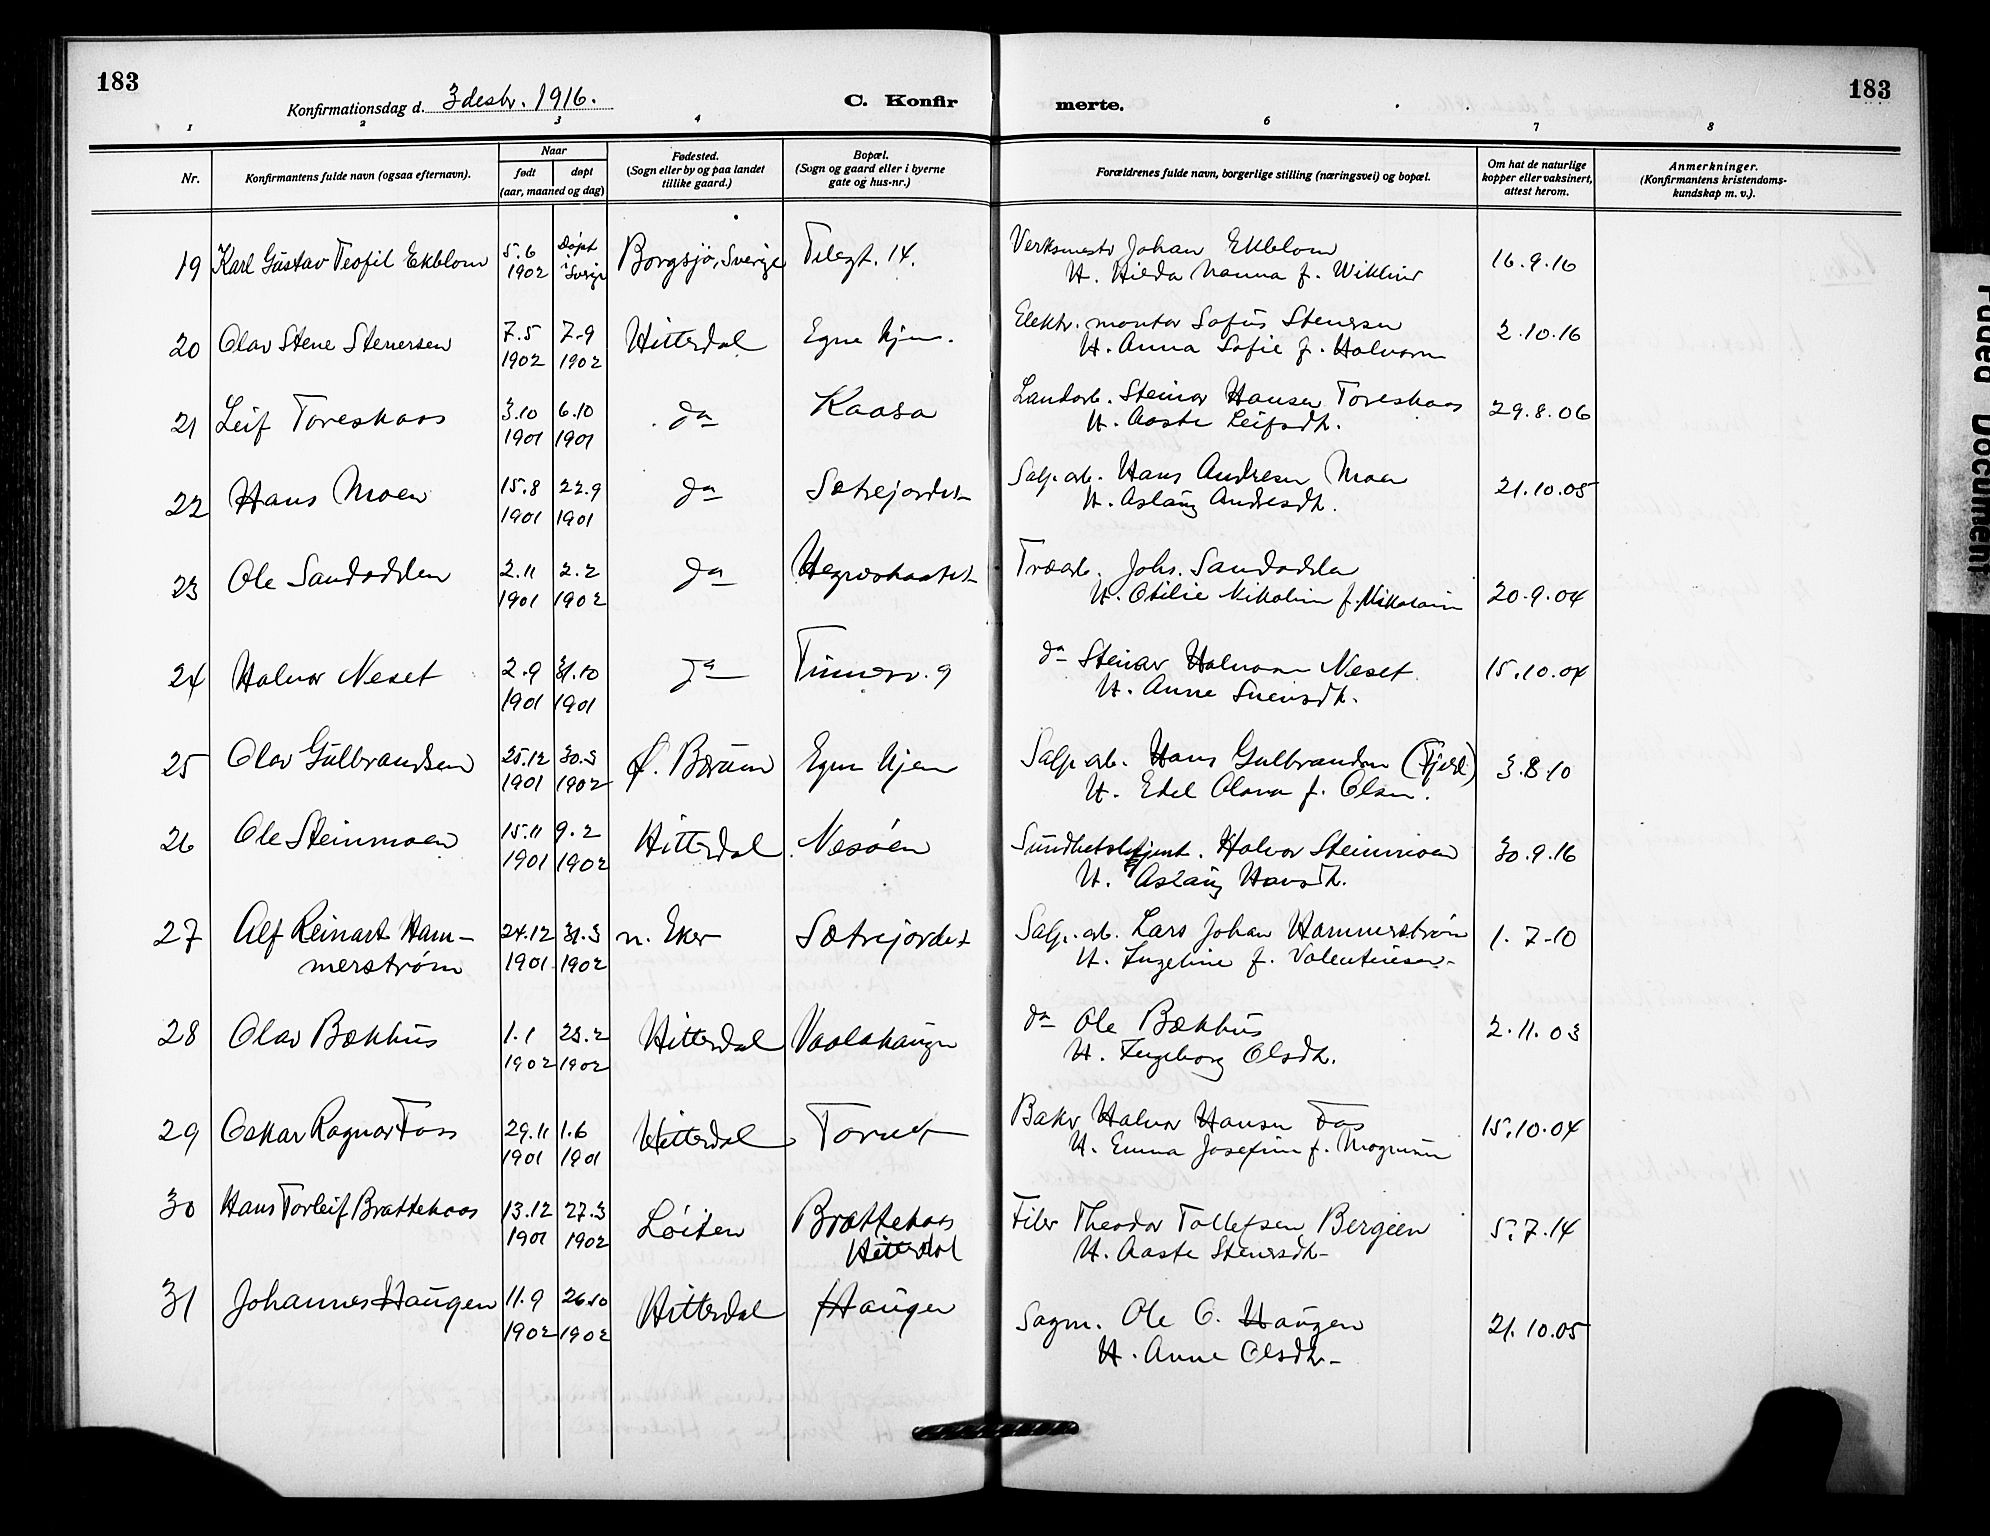 183
Konfirmationsdag d. 3 desbr. 1916.
C. Konfirmerte.
183
1 2 3 4 6 7 8
Nr.
Konfirmantens fulde navn (ogsaa efternavn).
Naar
født døpt
(aar, maaned og dag)
Fødested.
(Sogn eller by og paa landet
tillike gaard.)
Bopæl.
(Sogn og gaard eller i byerne
gate og hus-nr.)
Forældrenes fulde navn, borgerlige stilling (næringsvei) og bopæl.
Om hat de naturlige
kopper eller vaksinert,
attest herom.
Anmerkninger.
(Konfirmantens kristendoms-
kundskap m. v.).
19 Karl Gustav Teofil Ekblom 5.6 1902 Døpt i Sverige Borgsjö, Sverige Tlegt. 14. Verksmestr Johan Ekblom 16.9.16
H. Hilda Nanna f. Wiklind
20 Olav Stene Stenersen 7.5 1902 7-9 1902 Hitterdal Egne hjem. Elektr. montør Sofus Stenersen 2.10.16
H. Anna Sofie f. Halvorsen
21 Leif Toreskaas 3.10 1901 6.10 1901 do Kaasa Landarb. Steinar Hansen Toreskaas 29.8.06
H. Aaste Leifsdtr.
22 Hans Moen 15.8 1901 22.9 1901 do Sætrejordet Salp. arb. Hans Andresen Moen 21.10.05
H. Aslaug Andresdtr.
23 Ole Sandodden 2.11 1901 2.2 1902 do Træarb. Johs. Sandodden 20.9.04
H. Otilie Nikoline f. Nikolaisen
24 Halvor Neset 2.9 1901 31.10 1901 do Tinnesv. 9 do Steinar Halvorsen Neset 15.10.04
H. Anne Sveinsdtr.
25 Olav Gulbrandsen 25.12 1901 30.3 1902 Ø. Bærum Egne hjem Salp. arb. Hans Gulbrandsen (Fjeld) 3.8.10
H. Edel Olava f. Olsen.
26 Ole Steinmoen 15.11 1901 9.2 1902 Hitterdal Nesøen Sundhetsbetjent. Halvor Steinmoen 30.9.16
H. Aslaug Hansdtr.
27 Alf Reinart Ham- 24.12 1901 31.3 1902 n. Eker Sætrejordet Salp. arb. Lars Johan Hammerstrøm 1.7.10
merstrøm H. Ingeline f. Valentinsen
28 Olav Bækhus 1.1 1902 23.2 1902 Hitterdal Vaalahaugen do Ole Bækhus 2.11.03
H. Ingeborg Olsdtr.
29 Oskar Ragnar Foss 29.11 1901 1.6 1901 Hitterdal Torvet Baker Halvor Hansen Fos 15.10.04
H. Emma Josefine f. Mognussen
30 Hans Torleif Brattekaas 13.12 1901 27.3 1902 Løiten Brattekaas Filer Theodor Tollefsen Bergeen 5.7.14
Hitterdal H. Aaste Stenersdtr.
31 Johannes Haugen 11.9 1902 26.10 1902 Hitterdal Haugen Sagm. Ole O. Haugen 21.10.05
H. Anne Olsdtr.
Faded Document